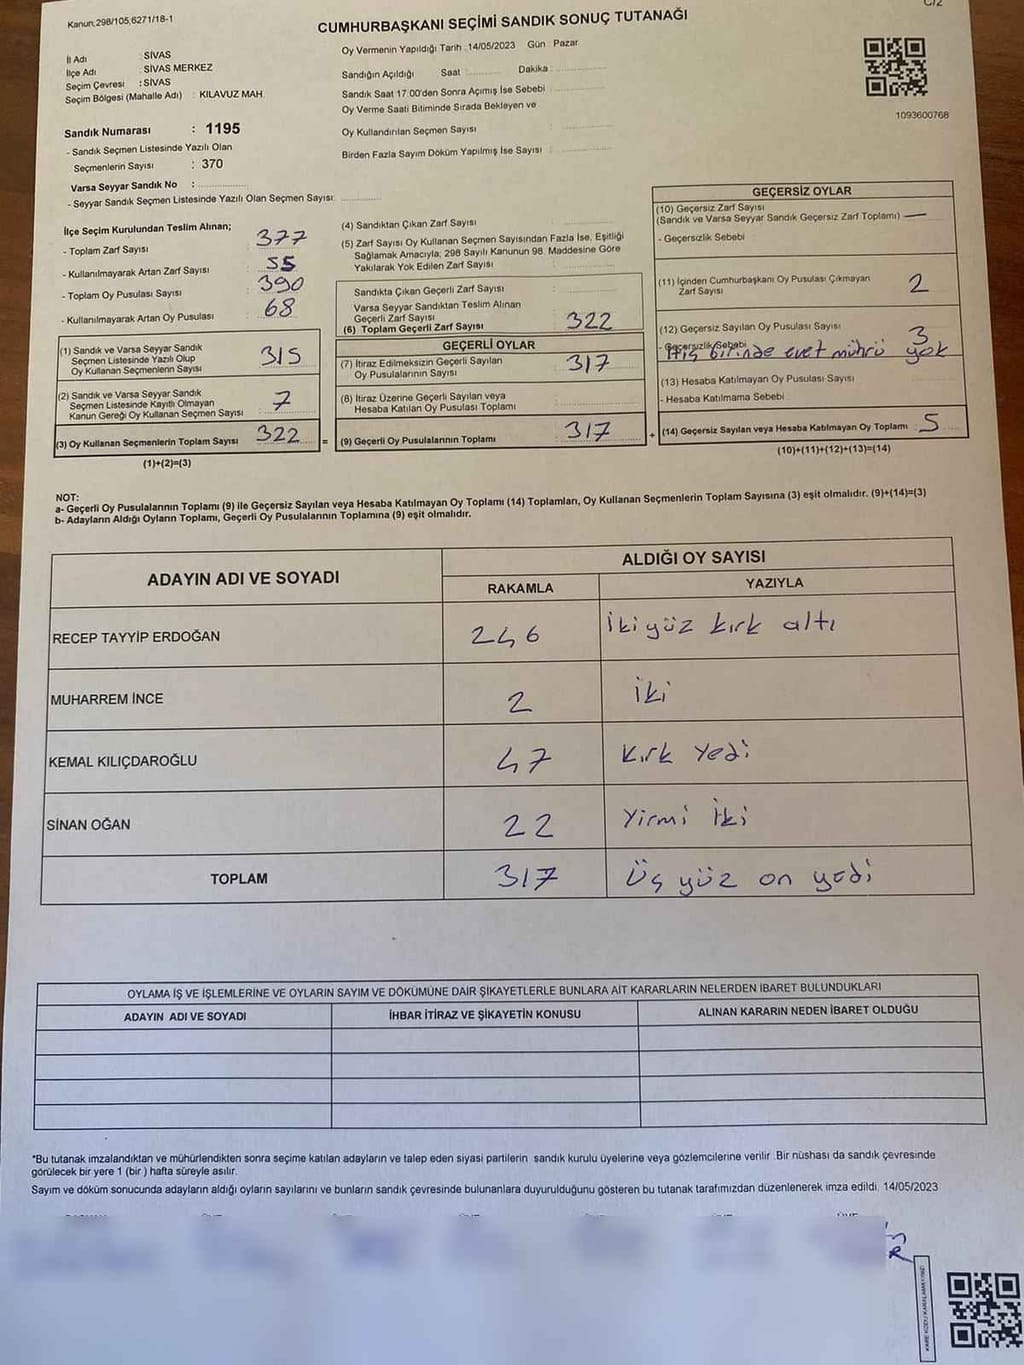 Kanun,298/105,6271/18-1
C/2
CUMHURBAŞKANI SEÇİMİ SANDIK SONUÇ TUTANAĞI
İl Adı : SİVAS
İlçe Adı : SİVAS MERKEZ
Seçim Çevresi : SİVAS
Seçim Bölgesi (Mahalle Adı) : KILAVUZ MAH.
Sandık Numarası : 1195
- Sandık Seçmen Listesinde Yazılı Olan
Seçmenlerin Sayısı : 370
Varsa Seyyar Sandık No :
- Seyyar Sandık Seçmen Listesinde Yazılı Olan Seçmen Sayısı:
Oy Vermenin Yapıldığı Tarih :14/05/2023 Gün : Pazar
Sandığın Açıldığı Saat : Dakika :
Sandık Saat 17.00'den Sonra Açımış İse Sebebi :
Oy Verme Saati Bitiminde Sırada Bekleyen ve
Oy Kullandırılan Seçmen Sayısı :
Birden Fazla Sayım Döküm Yapılmış İse Sayısı :
1093600768
İlçe Seçim Kurulundan Teslim Alınan;
- Toplam Zarf Sayısı : 377
- Kullanılmayarak Artan Zarf Sayısı : 55
- Toplam Oy Pusulası Sayısı : 390
- Kullanılmayarak Artan Oy Pusulası : 68
(1) Sandık ve Varsa Seyyar Sandık
Seçmen Listesinde Yazılı Olup
Oy Kullanan Seçmenlerin Sayısı : 315
(2) Sandık ve Varsa Seyyar Sandık
Seçmen Listesinde Kayıtlı Olmayan
Kanun Gereği Oy Kullanan Seçmen Sayısı : 7
(3) Oy Kullanan Seçmenlerin Toplam Sayısı : 322 =
(1)+(2)=(3)
(4) Sandıktan Çıkan Zarf Sayısı :
(5) Zarf Sayısı Oy Kullanan Seçmen Sayısından Fazla İse, Eşitliği
Sağlamak Amacıyla; 298 Sayılı Kanunun 98. Maddesine Göre
Yakılarak Yok Edilen Zarf Sayısı :
Sandıkta Çıkan Geçerli Zarf Sayısı :
Varsa Seyyar Sandıktan Teslim Alınan
Geçerli Zarf Sayısı :
(6) Toplam Geçerli Zarf Sayısı : 322
GEÇERLİ OYLAR
(7) İtiraz Edilmeksizin Geçerli Sayılan
Oy Pusulalarının Sayısı : 317
(8) İtiraz Üzerine Geçerli Sayılan veya
Hesaba Katılan Oy Pusulası Toplamı :
(9) Geçerli Oy Pusulalarının Toplamı : 317 +
GEÇERSİZ OYLAR
(10) Geçersiz Zarf Sayısı
(Sandık ve Varsa Seyyar Sandık Geçersiz Zarf Toplamı) : —
- Geçersizlik Sebebi :
(11) İçinden Cumhurbaşkanı Oy Pusulası Çıkmayan
Zarf Sayısı : 2
(12) Geçersiz Sayılan Oy Pusulası Sayısı : 3
- Geçersizlik Sebebi : Hiç birinde evet mührü yok
(13) Hesaba Katılmayan Oy Pusulası Sayısı :
- Hesaba Katılmama Sebebi :
(14) Geçersiz Sayılan veya Hesaba Katılmayan Oy Toplamı : 5
(10)+(11)+(12)+(13)=(14)
NOT:
a- Geçerli Oy Pusulalarının Toplamı (9) ile Geçersiz Sayılan veya Hesaba Katılmayan Oy Toplamı (14) Toplamları, Oy Kullanan Seçmenlerin Toplam Sayısına (3) eşit olmalıdır. (9)+(14)=(3)
b- Adayların Aldığı Oyların Toplamı, Geçerli Oy Pusulalarının Toplamına (9) eşit olmalıdır.
ADAYIN ADI VE SOYADI
ALDIĞI OY SAYISI
RAKAMLA YAZIYLA
RECEP TAYYİP ERDOĞAN 246 İkiyüz kırk altı
MUHARREM İNCE 2 iki
KEMAL KILIÇDAROĞLU 47 kırk yedi
SİNAN OĞAN 22 Yirmi iki
TOPLAM 317 Üç yüz on yedi
OYLAMA İŞ VE İŞLEMLERİNE VE OYLARIN SAYIM VE DÖKÜMÜNE DAİR ŞİKAYETLERLE BUNLARA AİT KARARLARIN NELERDEN İBARET BULUNDUKLARI
ADAYIN ADI VE SOYADI İHBAR İTİRAZ VE ŞİKAYETİN KONUSU ALINAN KARARIN NEDEN İBARET OLDUĞU
*Bu tutanak imzalandıktan ve mühürlendikten sonra seçime katılan adayların ve talep eden siyasi partilerin sandık kurulu üyelerine veya gözlemcilerine verilir .Bir nüshası da sandık çevresinde
görülecek bir yere 1 (bir ) hafta süreyle asılır.
Sayım ve döküm sonucunda adayların aldığı oyların sayılarını ve bunların sandık çevresinde bulunanlara duyurulduğunu gösteren bu tutanak tarafımızdan düzenlenerek imza edildi. 14/05/2023
KARE KODU KARALAMAYINIZ!